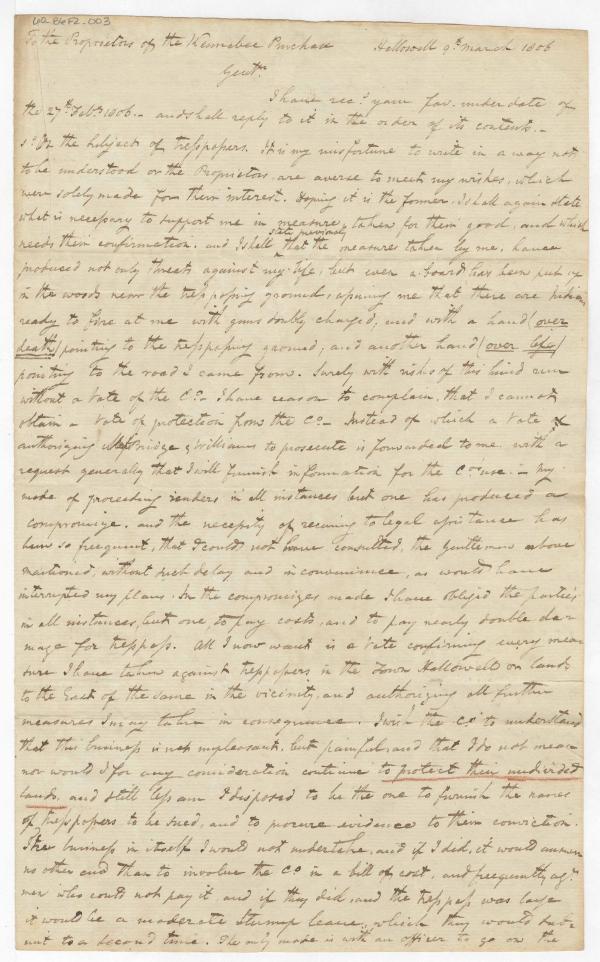 62.B6F2.003
To the Proprietors of the Kennebec Purchase Hallowell 9th March 1806
Gentn
I have recd your fav. under date of
the 27th Feby 1806. - and shall reply to it in the order of its contents. -
On the subject of tresspassers. It is my misfortune to write in a way not
to be understood or the Proprietors, are averse to meet my wishes, which
were solely made for their interest. Hoping it is the former, I shall again state
what is necessary to support me in measures, taken for their good, and which
needs their confirmation. and I shall state previously that the measures taken by me, have
produced not only threats against my life, but even a board has been put up
in the woods near the tresspassing ground, apprising me that there are
ready to fire at me with guns doubly charged, and with a hand (over
death) pointing to the tresspassing ground, and another hand (over life)
pointing to the road I came from. Surely with risks of this kind run
without a Vote of the Co. I have reason to complain, that I cannot
obtain a Vote of protection from the Co. Instead of which a Vote
authorizing Bridge & Williams to prosecute is forwarded to me with a
request generally that I will furnish information for the Cos use. - My
mode of proceeding renders in all instances but one has produced a
compromize. and the necessity of recuring to legal assistance has
been so frequent, that I could not have consulted, the gentlemen above
mentioned, without such delay and inconvenience, as would have
interrupted my plans. In the compromizes made I have obliged the parties
in all instances, but one to pay costs, and to pay nearly double da-
mage for tresspass. All I now want is a Vote confirming every mea-
sure I have taken against tresspassers in the Town Hallowell or lands
to the East of the same in the vicinity, and authorizing all further
measures I may take in consequence. I wish the Co. to understand
that this business is not unpleasant, but painful, and that I do not mean
nor would I for any consideration continue to protect their undivided
lands, and still less am I disposed to be the one to furnish the names
of tresspassers to be sued, and to procure evidence to their conviction.
The business in itself I would not undertake, and if I did, it would answer
no other end than to involve the Co. in a bill of cost, and frequently agt
men who could not pay it, and if they did, and the tresspass was large
it would be a moderate stump leave, which they would sub-
mit to a second time. The only mode is with an officer to go on the